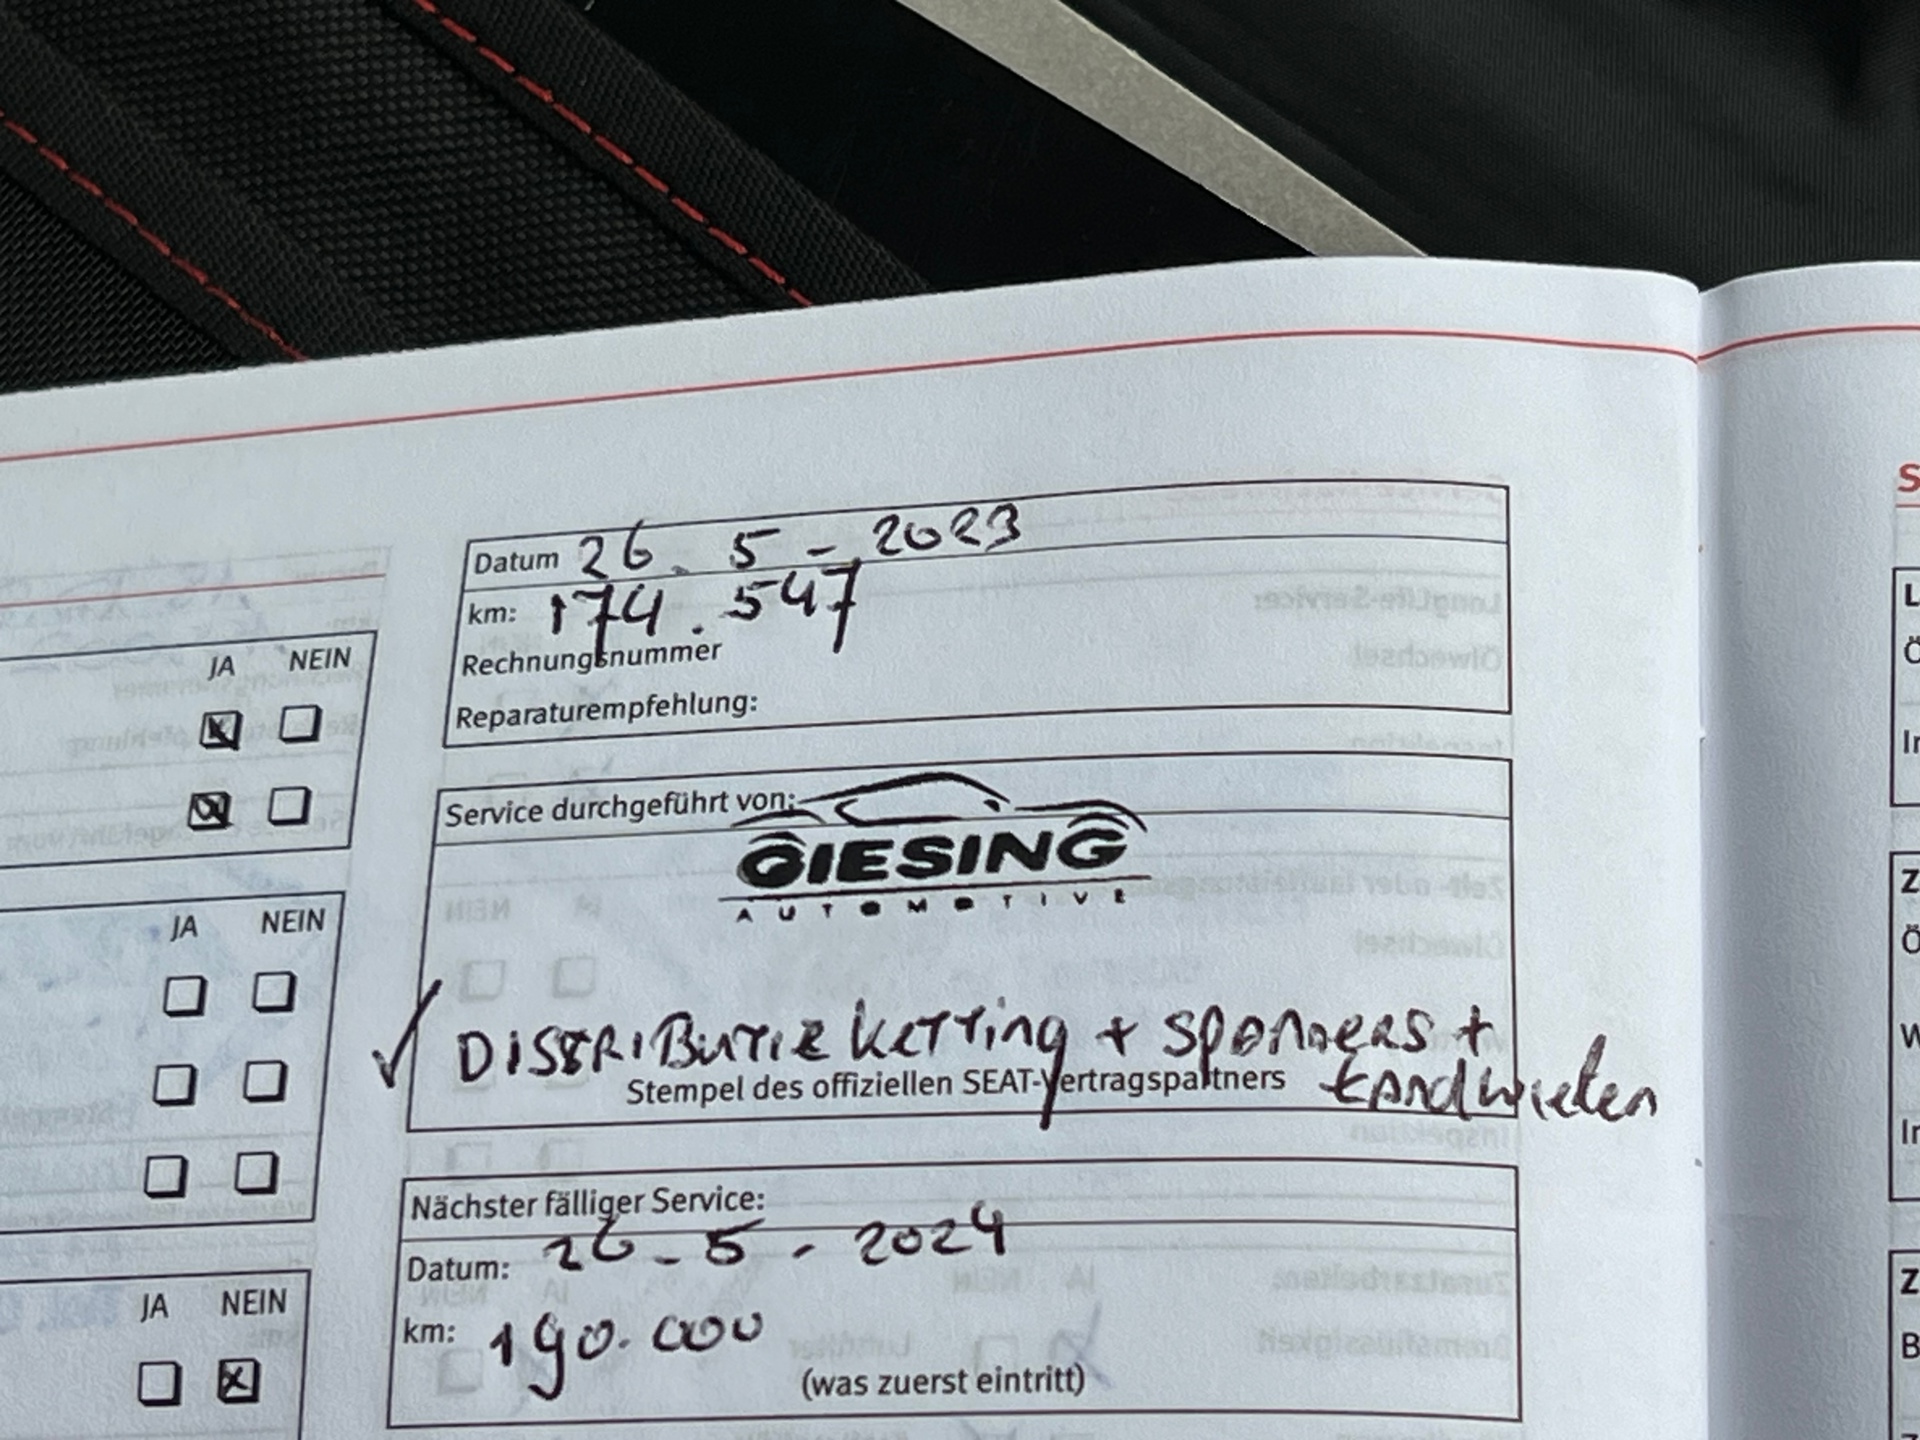 Datum 26. 5 - 2023
km: 174.547
Rechnungsnummer
Reparaturempfehlung:
JA NEIN
Service durchgeführt von:
GIESING
AUTOMOTIVE
JA NEIN
✓ DISTRIBUTIE KETTing + SPANNERS +
tandwielen
Stempel des offiziellen SEAT-Vertragspartners
Nächster fälliger Service:
Datum: 26 - 5 - 2024
km: 190.000
(was zuerst eintritt)
JA NEIN